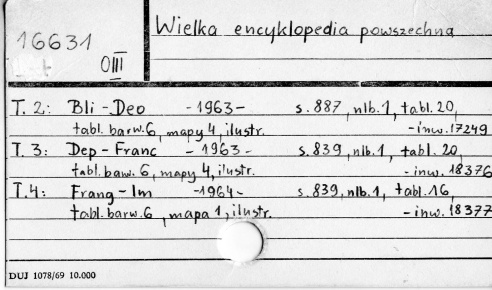 16631
OIII
Wielka encyklopedia powszechna
T. 2: Bli - Deo - 1963 - s. 887, nlb. 1, tabl. 20,
tabl. barw. 6, mapy 4, ilustr. - inw. 17249
T. 3: Dep - Franc - 1963 - s. 839, nlb. 1, tabl. 20,
tabl. baw. 6, mapy 4, ilustr. - inw. 18376
T. 4: Frang - Im - 1964 - s. 839, nlb. 1, tabl. 16,
tabl. barw. 6, mapa 1, ilustr. - inw. 18377
DUJ 1078/69 10.000